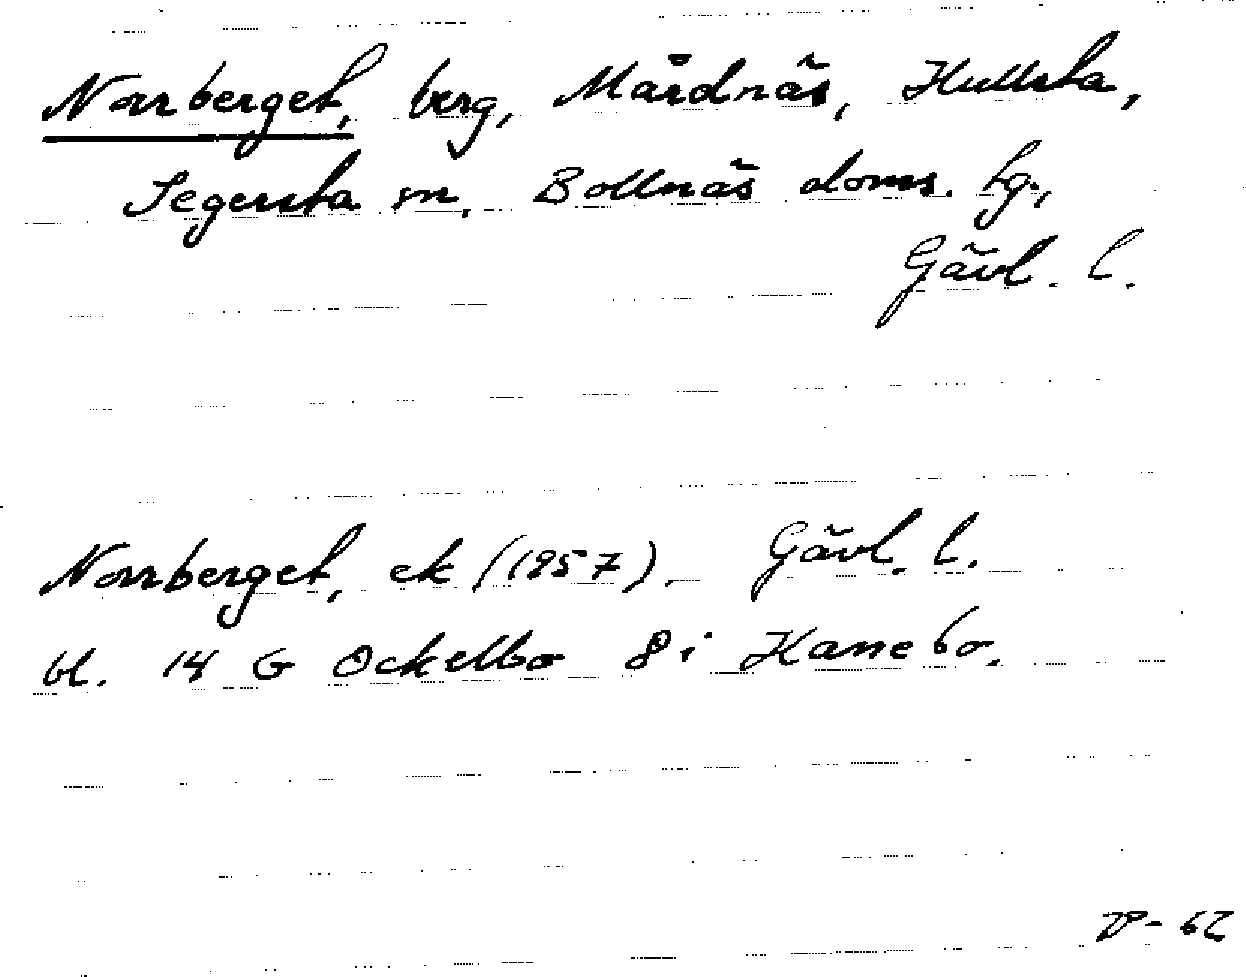 Norrberget, berg, Mårdnäs, Hullsta,
Segersta sn, Bollnäs doms. tg.,
Gävl. l.
Norrberget, ek (1957), Gävl. l.
bl. 14 G Ockelbo 8 i Hanebo.